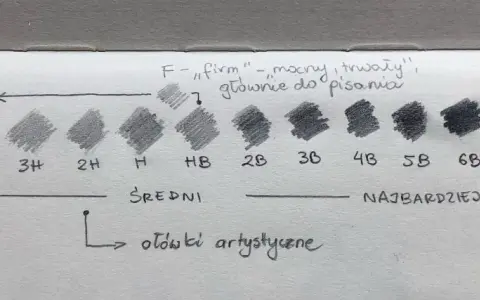 F - „firm” - mocny, trwały”,
głównie do pisania
3H 2H H HB 2B 3B 4B 5B 6B
ŚREDNI NAJBARDZIEJ
ołówki artystyczne